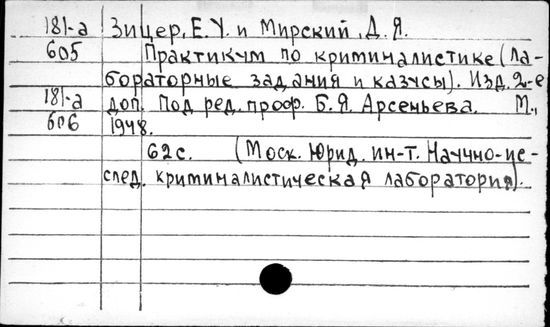 181-а Зицер, Е.У. и Мирский, Д.Я.
605 Практикум по криминалистике (ла-
бораторные задания и казусы). Изд. 2-е
181-а доп. Под ред. проф. Б.Я. Арсеньева. М.,
606 1948.
62 с. (Моск. Юрид. ин-т. Научно-ис-
след. криминалистическая лаборатория).